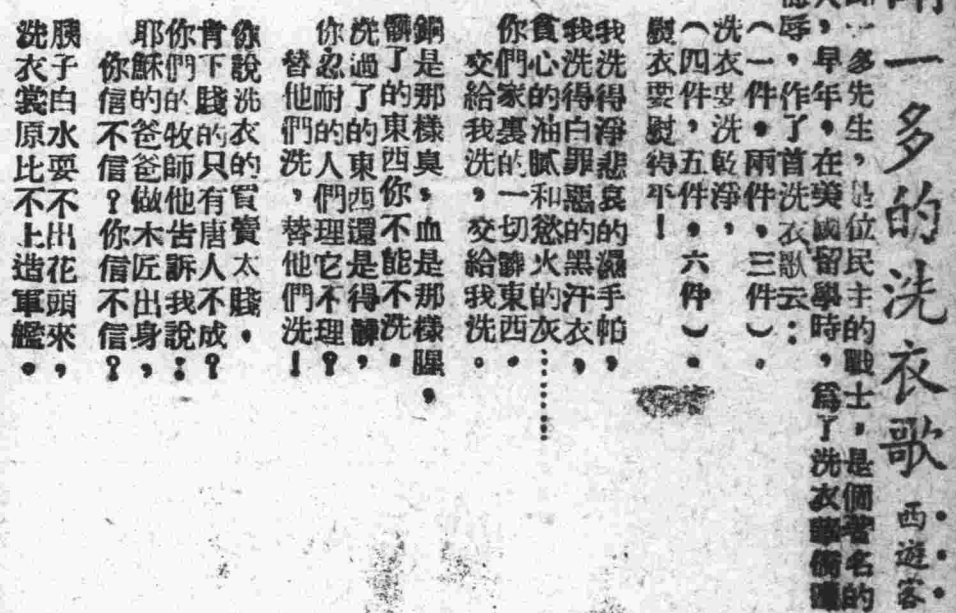 一多的洗衣歌 西遊客
一多先生,是位民主的戰士,是個著名的
人,早年,在美國留學時,爲了洗衣華僑
辱,作了首洗衣歌云:
(一件,兩件,三件).
洗衣要洗乾淨,
(四件,五件,六件).
熨衣要熨得平!
我洗得淨悲哀的濕手帕,
我洗得白罪惡的黑汗衣,
貪心的油膩和慾火的灰………
你們家裏的一切髒東西.
交給我洗,交給我洗。
銅是那樣臭,血是那樣腥,
髒了的東西你不能不洗.
洗過了的東西還是得髒,
你忍耐的人們理它不理?
替他們洗,替他們洗!
你說洗衣的買賣太賤,
肯下賤的只有唐人不成?
你們的牧師他告訴我說:
耶穌的爸爸做木匠出身,
你信不信?你信不信?
胰子白水耍不出花頭來,
洗衣裳原比不上造軍艦。